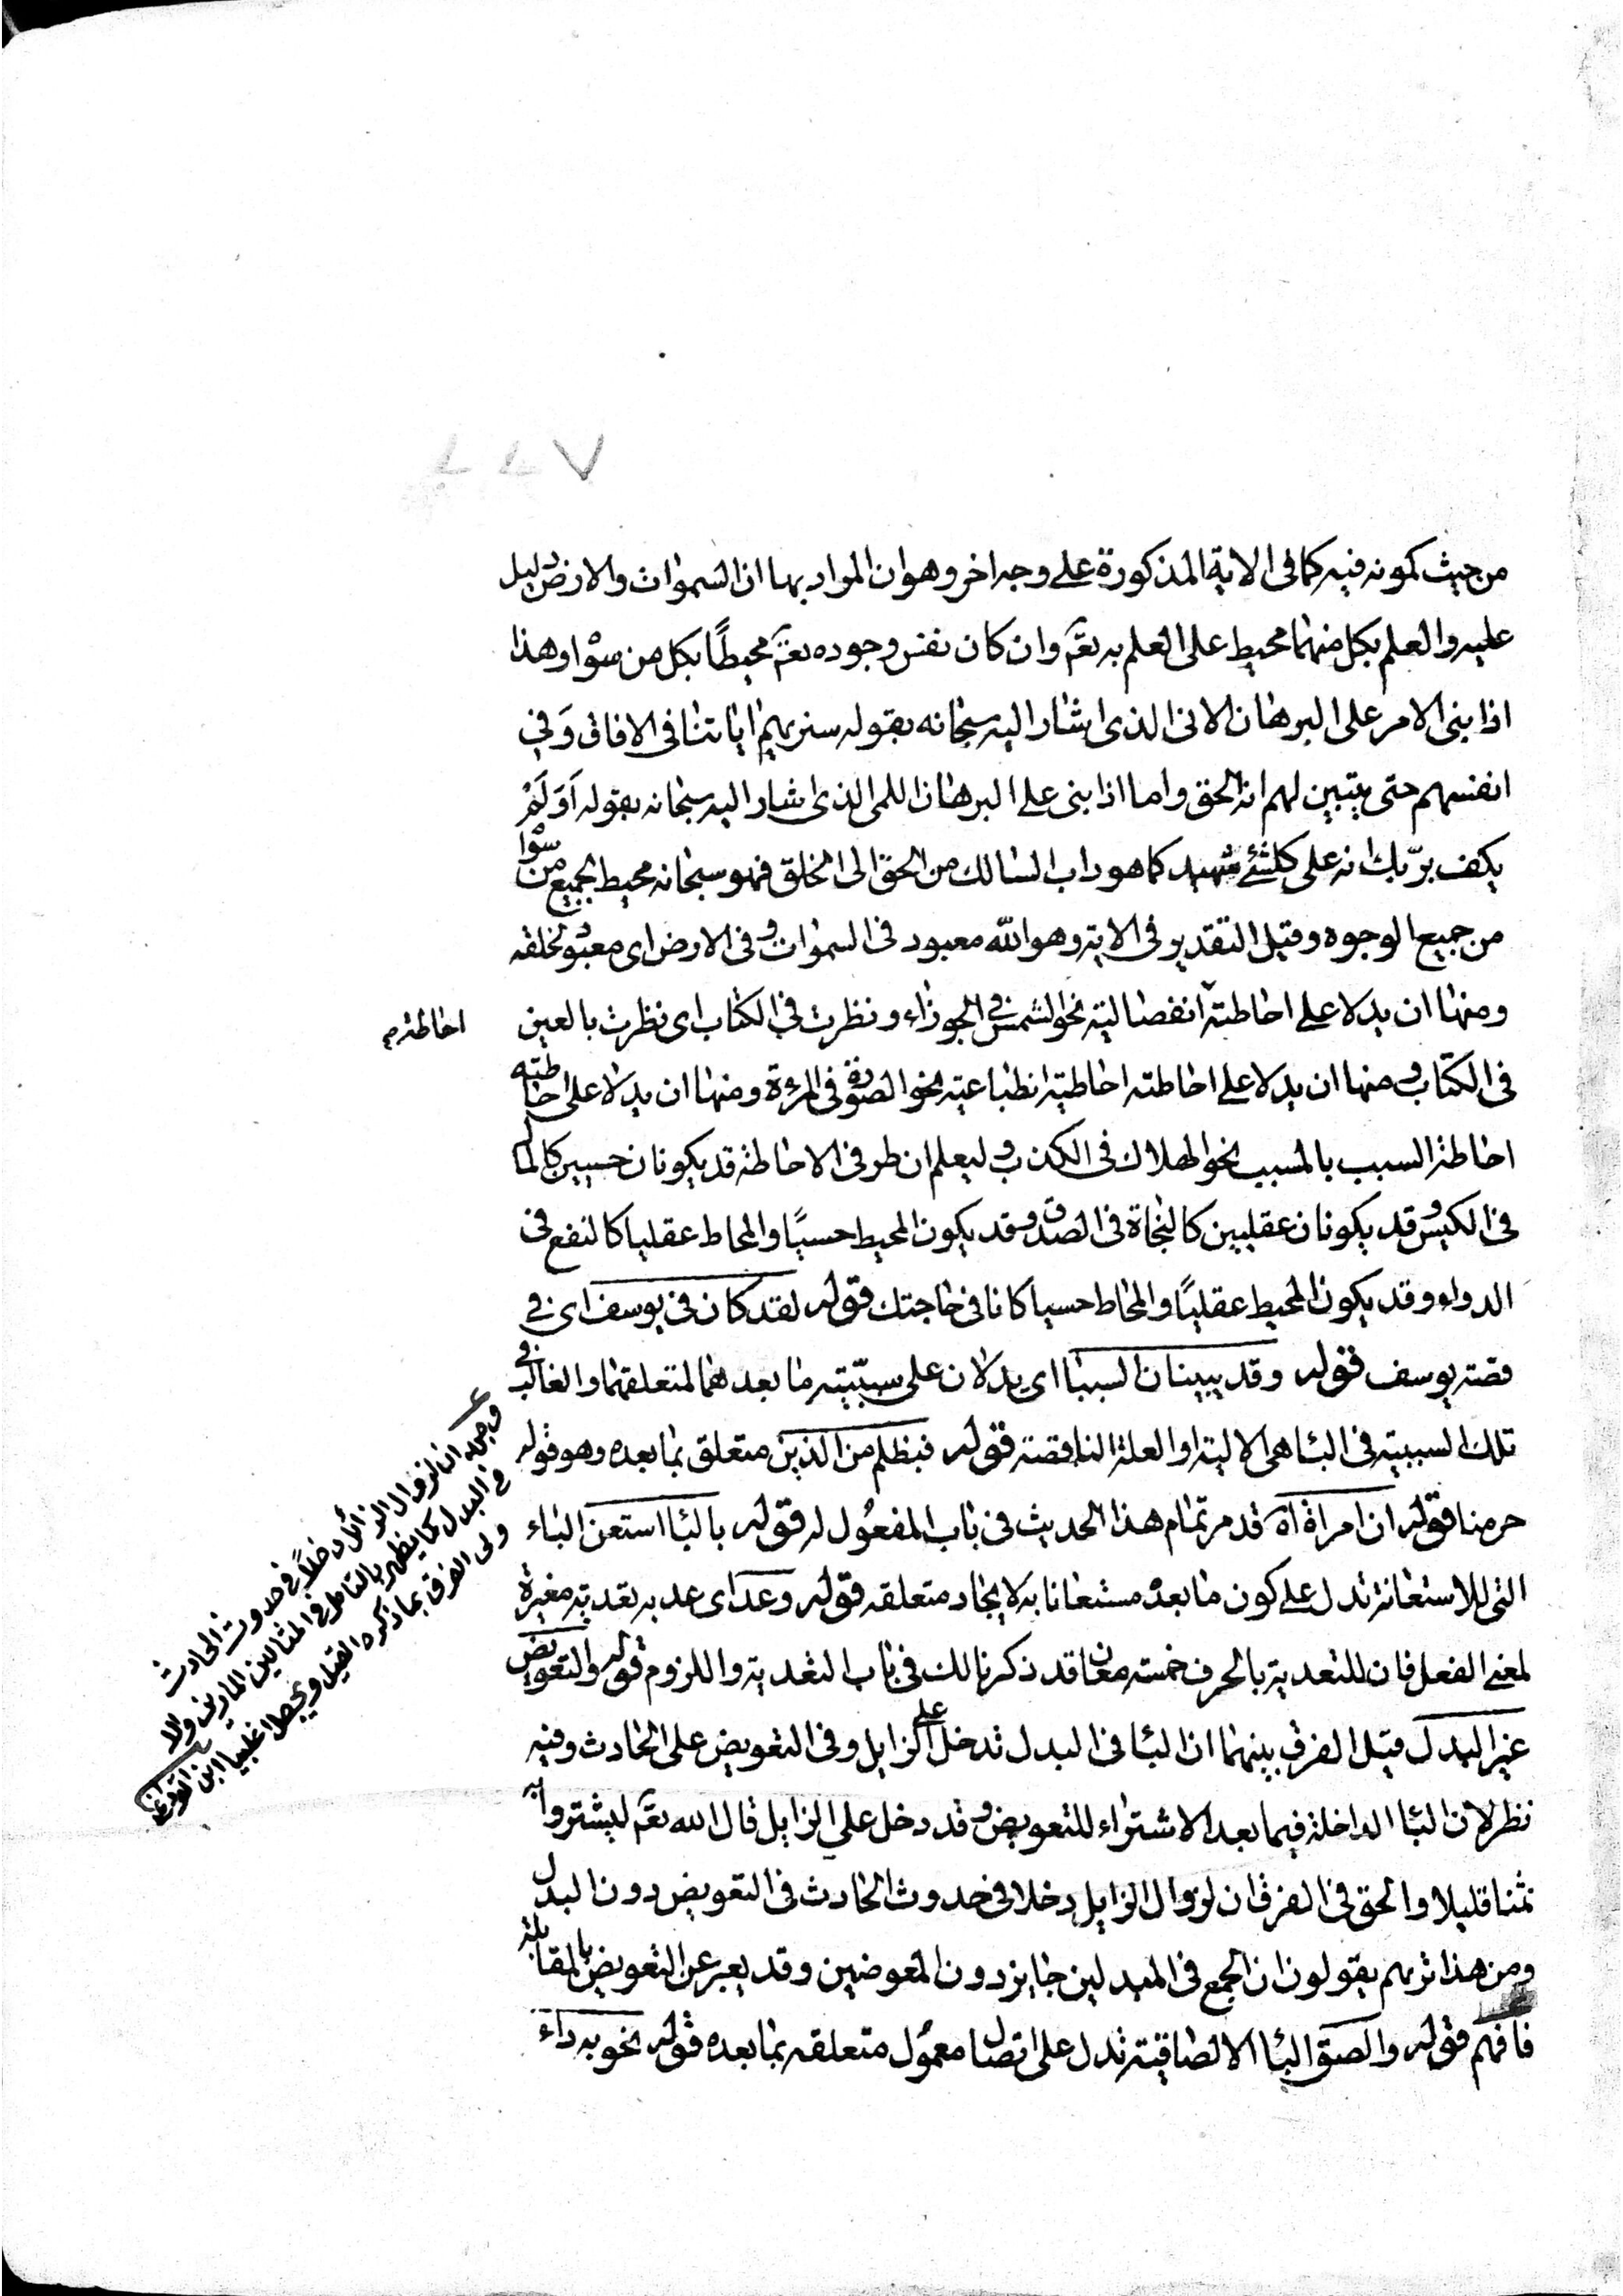 ٢٢٧
من حيث كمونه فيه كما فى الاية المذكورة على وجه اخر وهو ان المراد بها ان السموات والارض دليل
عليه والعلم بكل منهما محيط على العلم به تعم وان كان نفس وجوده تعم محيطًا بكل من سوا وهذا
اذا بنى الامر على البرهان الانى الذى اشار اليه سبحانه بقوله سنريهم اياتنا فى الافاق وَفي
انفسهم حتى يتبين لهم انه الحق واما اذا بنى على البرهان اللمى الذى اشار اليه سبحانه بقوله اَوَلَمْ
يكف بربّك انه على كلشئ شهيد كما هو داب السالك من الحق الى الخلق فهو سبحانه محيط بجميع من سوا
من جميع الوجوه وقيل التقدير فى الاية وهو الله معبود فى السموات وفى الارض اى معبود لخلقه
ومنها ان يدلا على احاطته انفصالية نحو الشمس فى الجوزاء ونظرت في الكتاب اى نظرت بالعين
احاطة م
فى الكتاب ومنها ان يدلا على احاطته احاطية انطباعية نحو الصورة فى المرءة ومنها ان يدلا على احاطته
احاطة السبب بالمسبب نحو الهلاك فى الكذب وليعلم ان طرفى الاحاطة قد يكونان حسيين كالمال
فى الكيس وقد يكونان عقليين كالنجاة فى الصدق وقد يكون المحيط حسيًا والمحاط عقليا كالنفع فى
الدواء وقد يكون المحيط عقليًا والمحاط حسيا كانا فى حاجتك قوله لقد كان فى يوسف اى في
قصة يوسف قوله وقد يبينان السببا اى يدلان على سببّية ما بعدهما لمتعلقهما والغالب فى
تلك السببية فى البا هى الالية او العلة الناقصة قوله فبظلم من الذين متعلق بما بعده وهو قوله
حرمنا قوله ان امراة اه قد مر تمام هذا الحديث فى باب المفعُول له قوله بالبا استعن الباء
التى للاستعانة تدل على كون ما بعده مستعانا به لايجاد متعلقه قوله وعد اى عد به تعدية مغيرة
لمعنى الفعل فان للتعدية بالحرف خمسة معان قد ذكرنا لك فى باب التعدية واللزوم قوله والتعويض
غير البدل قيل الفرق بينهما ان البا فى البدل تدخل على الزايل وفى التعويض على الحادث وفيه
نظر لان البا الداخلة فيما بعد الاشتراء للتعويض وقد دخل على الزايل قال الله تعم ليشتروا به
ثمنا قليلا والحق فى الفرق ان لزوال الزايل دخلا فى حدوث الحادث فى التعويض دون البدل
ومن هذا تريهم يقولون ان الجمع فى المبدلين جايز دون المعوضين وقد يعبر عن التعويض بالمقابلة
فافهم قوله والصق البا الالصاقية تدل على اتصال معمُول متعلقه بما بعده قوله نحو به داء
وجه ان لزوال الزائل دخلاً فى حدوث الحادث
فى البدل كما يظهر بالتامل فى المثالين المارين والا
ولى الفرق بما ذكره القيل ويجعل اغلبيا